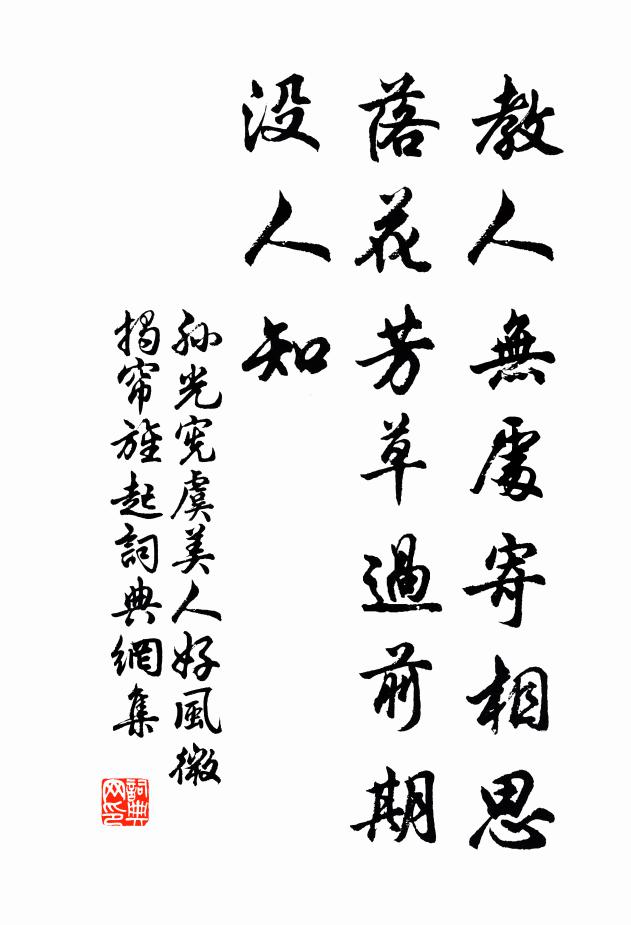 教人無處寄相思
落花芳草過前期
没人知
孙光宪虞美人好風微
揭帘旌起詞典網集
詞典
网印